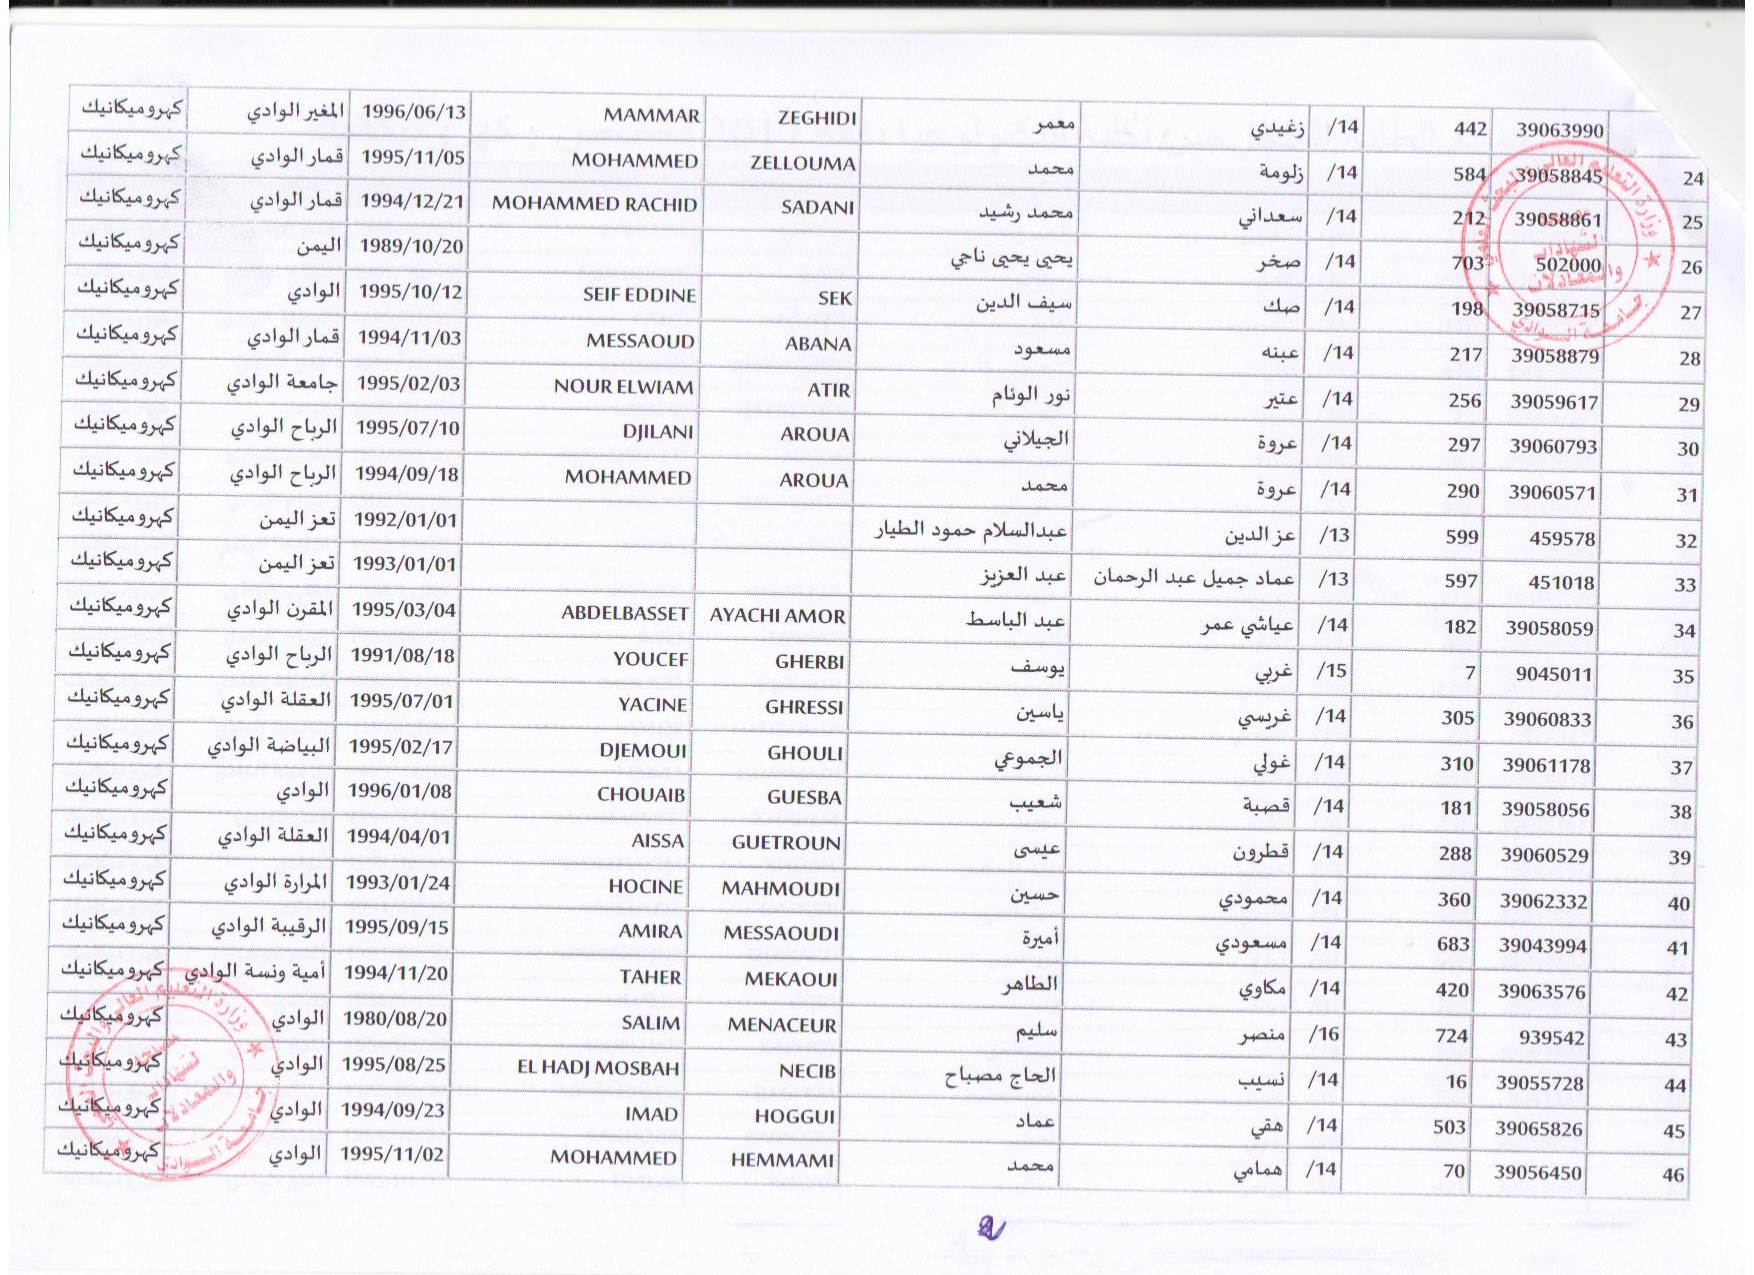 39063990 442 14/ زغيدي معمر ZEGHIDI MAMMAR 1996/06/13 المغير الوادي كهروميكانيك
24 39058845 584 14/ زلومة محمد ZELLOUMA MOHAMMED 1995/11/05 قمار الوادي كهروميكانيك
25 39058861 212 14/ سعداني محمد رشيد SADANI MOHAMMED RACHID 1994/12/21 قمار الوادي كهروميكانيك
26 502000 703 14/ صخر يحيى يحيى ناجي 1989/10/20 اليمن كهروميكانيك
27 39058715 198 14/ صك سيف الدين SEK SEIF EDDINE 1995/10/12 الوادي كهروميكانيك
28 39058879 217 14/ عبنه مسعود ABANA MESSAOUD 1994/11/03 قمار الوادي كهروميكانيك
29 39059617 256 14/ عتير نور الوئام ATIR NOUR ELWIAM 1995/02/03 جامعة الوادي كهروميكانيك
30 39060793 297 14/ عروة الجيلاني AROUA DJILANI 1995/07/10 الرباح الوادي كهروميكانيك
31 39060571 290 14/ عروة محمد AROUA MOHAMMED 1994/09/18 الرباح الوادي كهروميكانيك
32 459578 599 13/ عز الدين عبدالسلام حمود الطيار 1992/01/01 تعز اليمن كهروميكانيك
33 451018 597 13/ عماد جميل عبد الرحمان عبد العزيز 1993/01/01 تعز اليمن كهروميكانيك
34 39058059 182 14/ عياشي عمر عبد الباسط AYACHI AMOR ABDELBASSET 1995/03/04 المقرن الوادي كهروميكانيك
35 9045011 7 15/ غربي يوسف GHERBI YOUCEF 1991/08/18 الرباح الوادي كهروميكانيك
36 39060833 305 14/ غريسي ياسين GHRESSI YACINE 1995/07/01 العقلة الوادي كهروميكانيك
37 39061178 310 14/ غولي الجموعي GHOULI DJEMOUI 1995/02/17 البياضة الوادي كهروميكانيك
38 39058056 181 14/ قصبة شعيب GUESBA CHOUAIB 1996/01/08 الوادي كهروميكانيك
39 39060529 288 14/ قطرون عيسى GUETROUN AISSA 1994/04/01 العقلة الوادي كهروميكانيك
40 39062332 360 14/ محمودي حسين MAHMOUDI HOCINE 1993/01/24 المرارة الوادي كهروميكانيك
41 39043994 683 14/ مسعودي أميرة MESSAOUDI AMIRA 1995/09/15 الرقيبة الوادي كهروميكانيك
42 39063576 420 14/ مكاوي الطاهر MEKAOUI TAHER 1994/11/20 أمية ونسة الوادي كهروميكانيك
43 939542 724 16/ منصر سليم MENACEUR SALIM 1980/08/20 الوادي كهروميكانيك
44 39055728 16 14/ نسيب الحاج مصباح NECIB EL HADJ MOSBAH 1995/08/25 الوادي كهروميكانيك
45 39065826 503 14/ هقي عماد HOGGUI IMAD 1994/09/23 الوادي كهروميكانيك
46 39056450 70 14/ همامي محمد HEMMAMI MOHAMMED 1995/11/02 الوادي كهروميكانيك
وزارة التعليم العالي والبحث العلمي
الشهادات
والمعادلات
جامعة الوادي
وزارة التعليم العالي والبحث
والمعادلات
جامعة الوادي